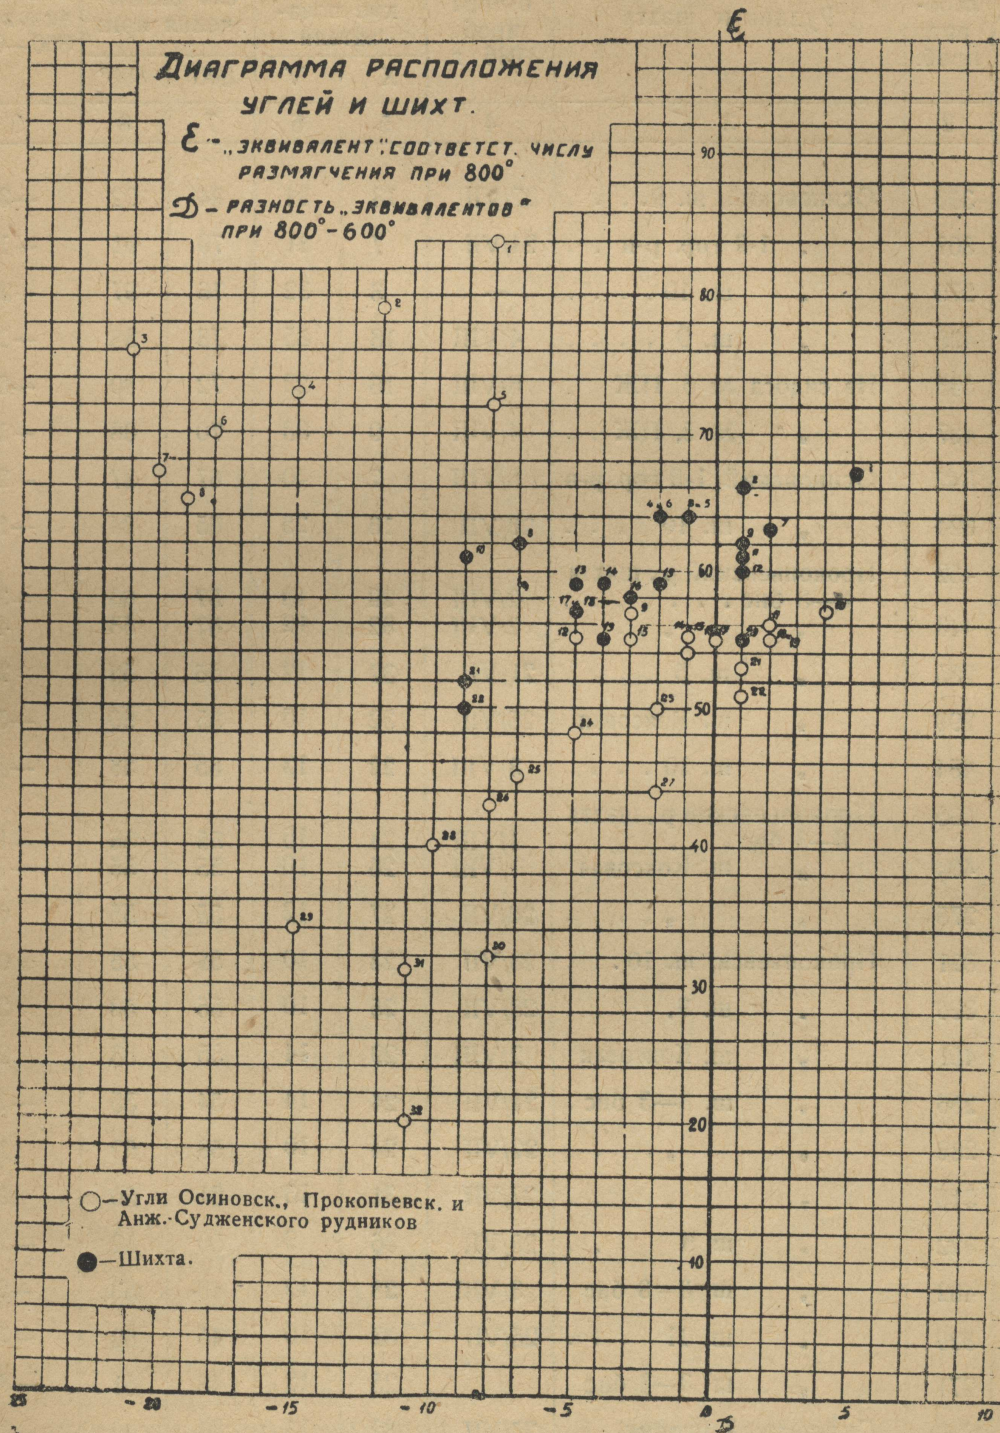 Ɛ
ДИАГРАММА РАСПОЛОЖЕНИЯ
УГЛЕЙ И ШИХТ.
Ɛ -„ЭКВИВАЛЕНТ", СООТВЕТСТ. ЧИСЛУ
РАЗМЯГЧЕНИЯ ПРИ 800°
Д - РАЗНОСТЬ „ЭКВИВАЛЕНТОВ"
ПРИ 800°-600°
90
1
80
2
3
4
5
6
70
7
8
1
2
4 6
3 5
7
8
9
10
60
12
13
14
15
16
17 18
9
12
13
15
11
21
22
21
22
50
23
24
25
26
27
28
40
29
30
31
30
32
20
○—Угли Осиновск., Прокопьевск. и
Анж.-Судженского рудников
●—Шихта.
10
25 -20 -15 -10 -5 0 5 10
Д